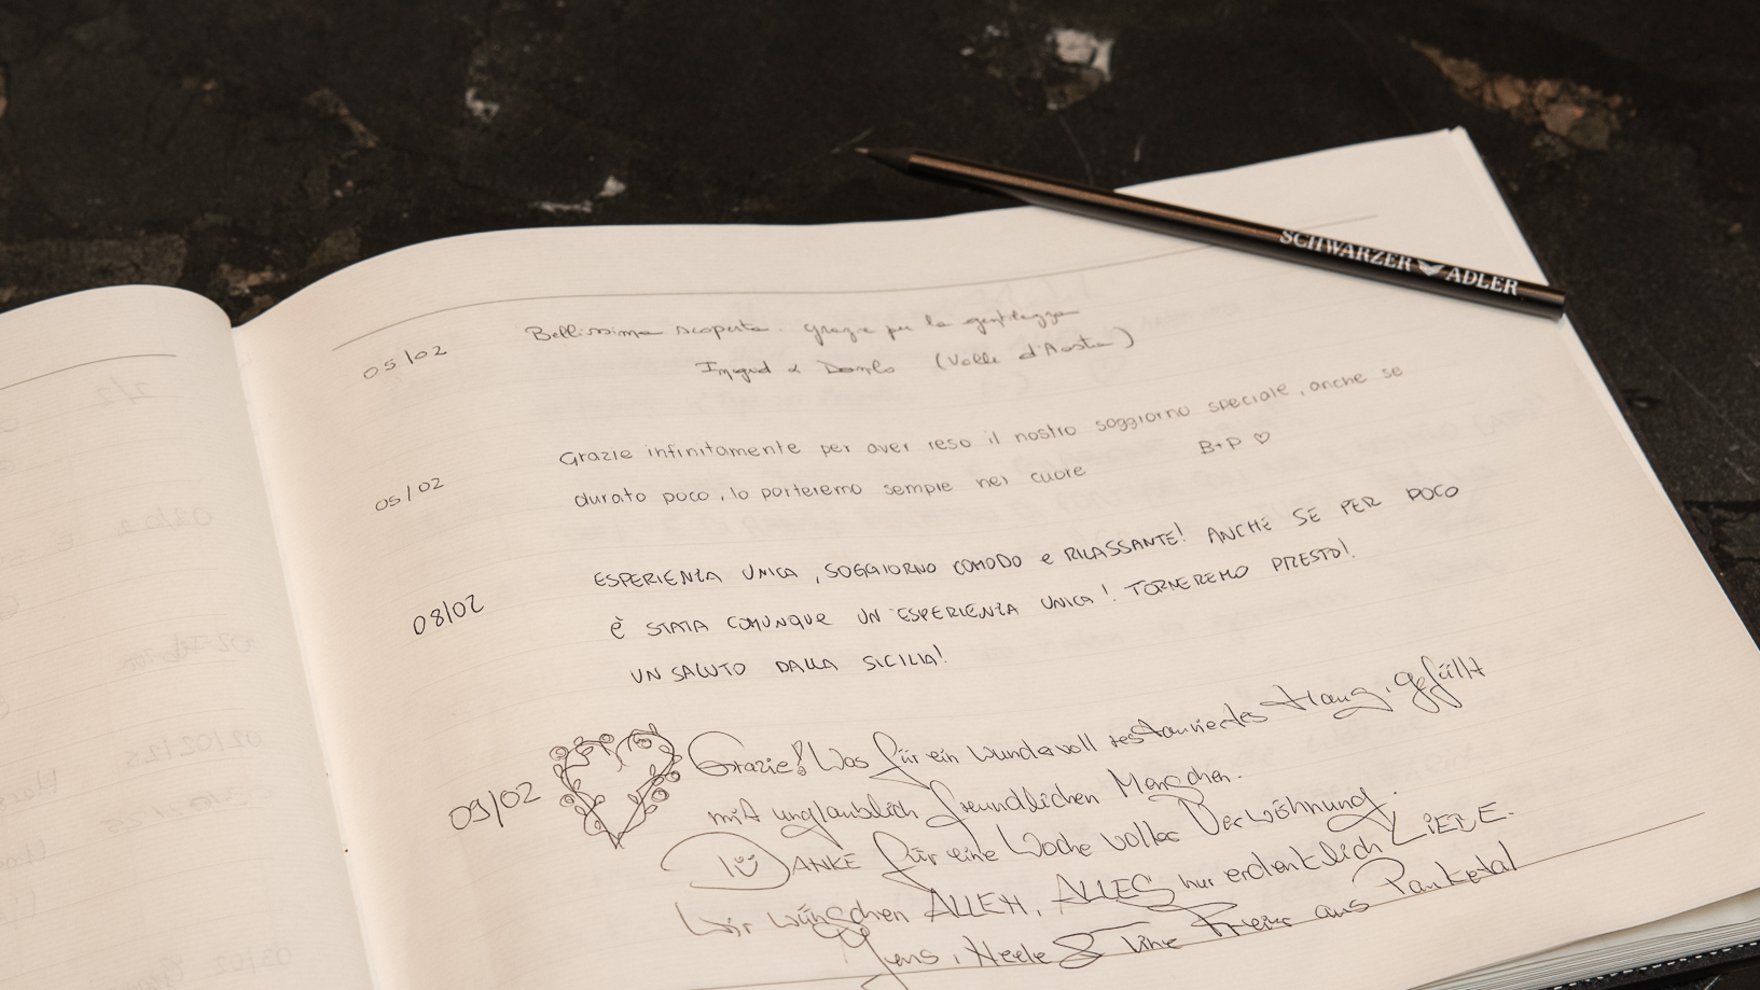 SCHWARZER ADLER
05/02 Bellissima scoperta. Grazie per la gentilezza
Ingrid & Danilo (Valle d'Aosta)
05/02 Grazie infinitamente per aver reso il nostro soggiorno speciale, anche se
durato poco, lo porteremo sempre nel cuore B+P ♡
08/02 ESPERIENZA UNICA, SOGGIORNO COMODO e RILASSANTE! ANCHE SE PER POCO
È STATA COMUNQUE UN'ESPERIENZA UNICA! TORNEREMO PRESTO!
UN SALUTO DALLA SICILIA!
09/02 Grazie! Was für ein wundervoll restauriertes Haus, gefüllt
mit unglaublich freundlichen Menschen.
DANKE für eine Woche voller Verwöhnung.
Wir wünschen ALLEN, ALLES nur erdenklich LIEBE.
Jens, Neele & Tine aus Panketal